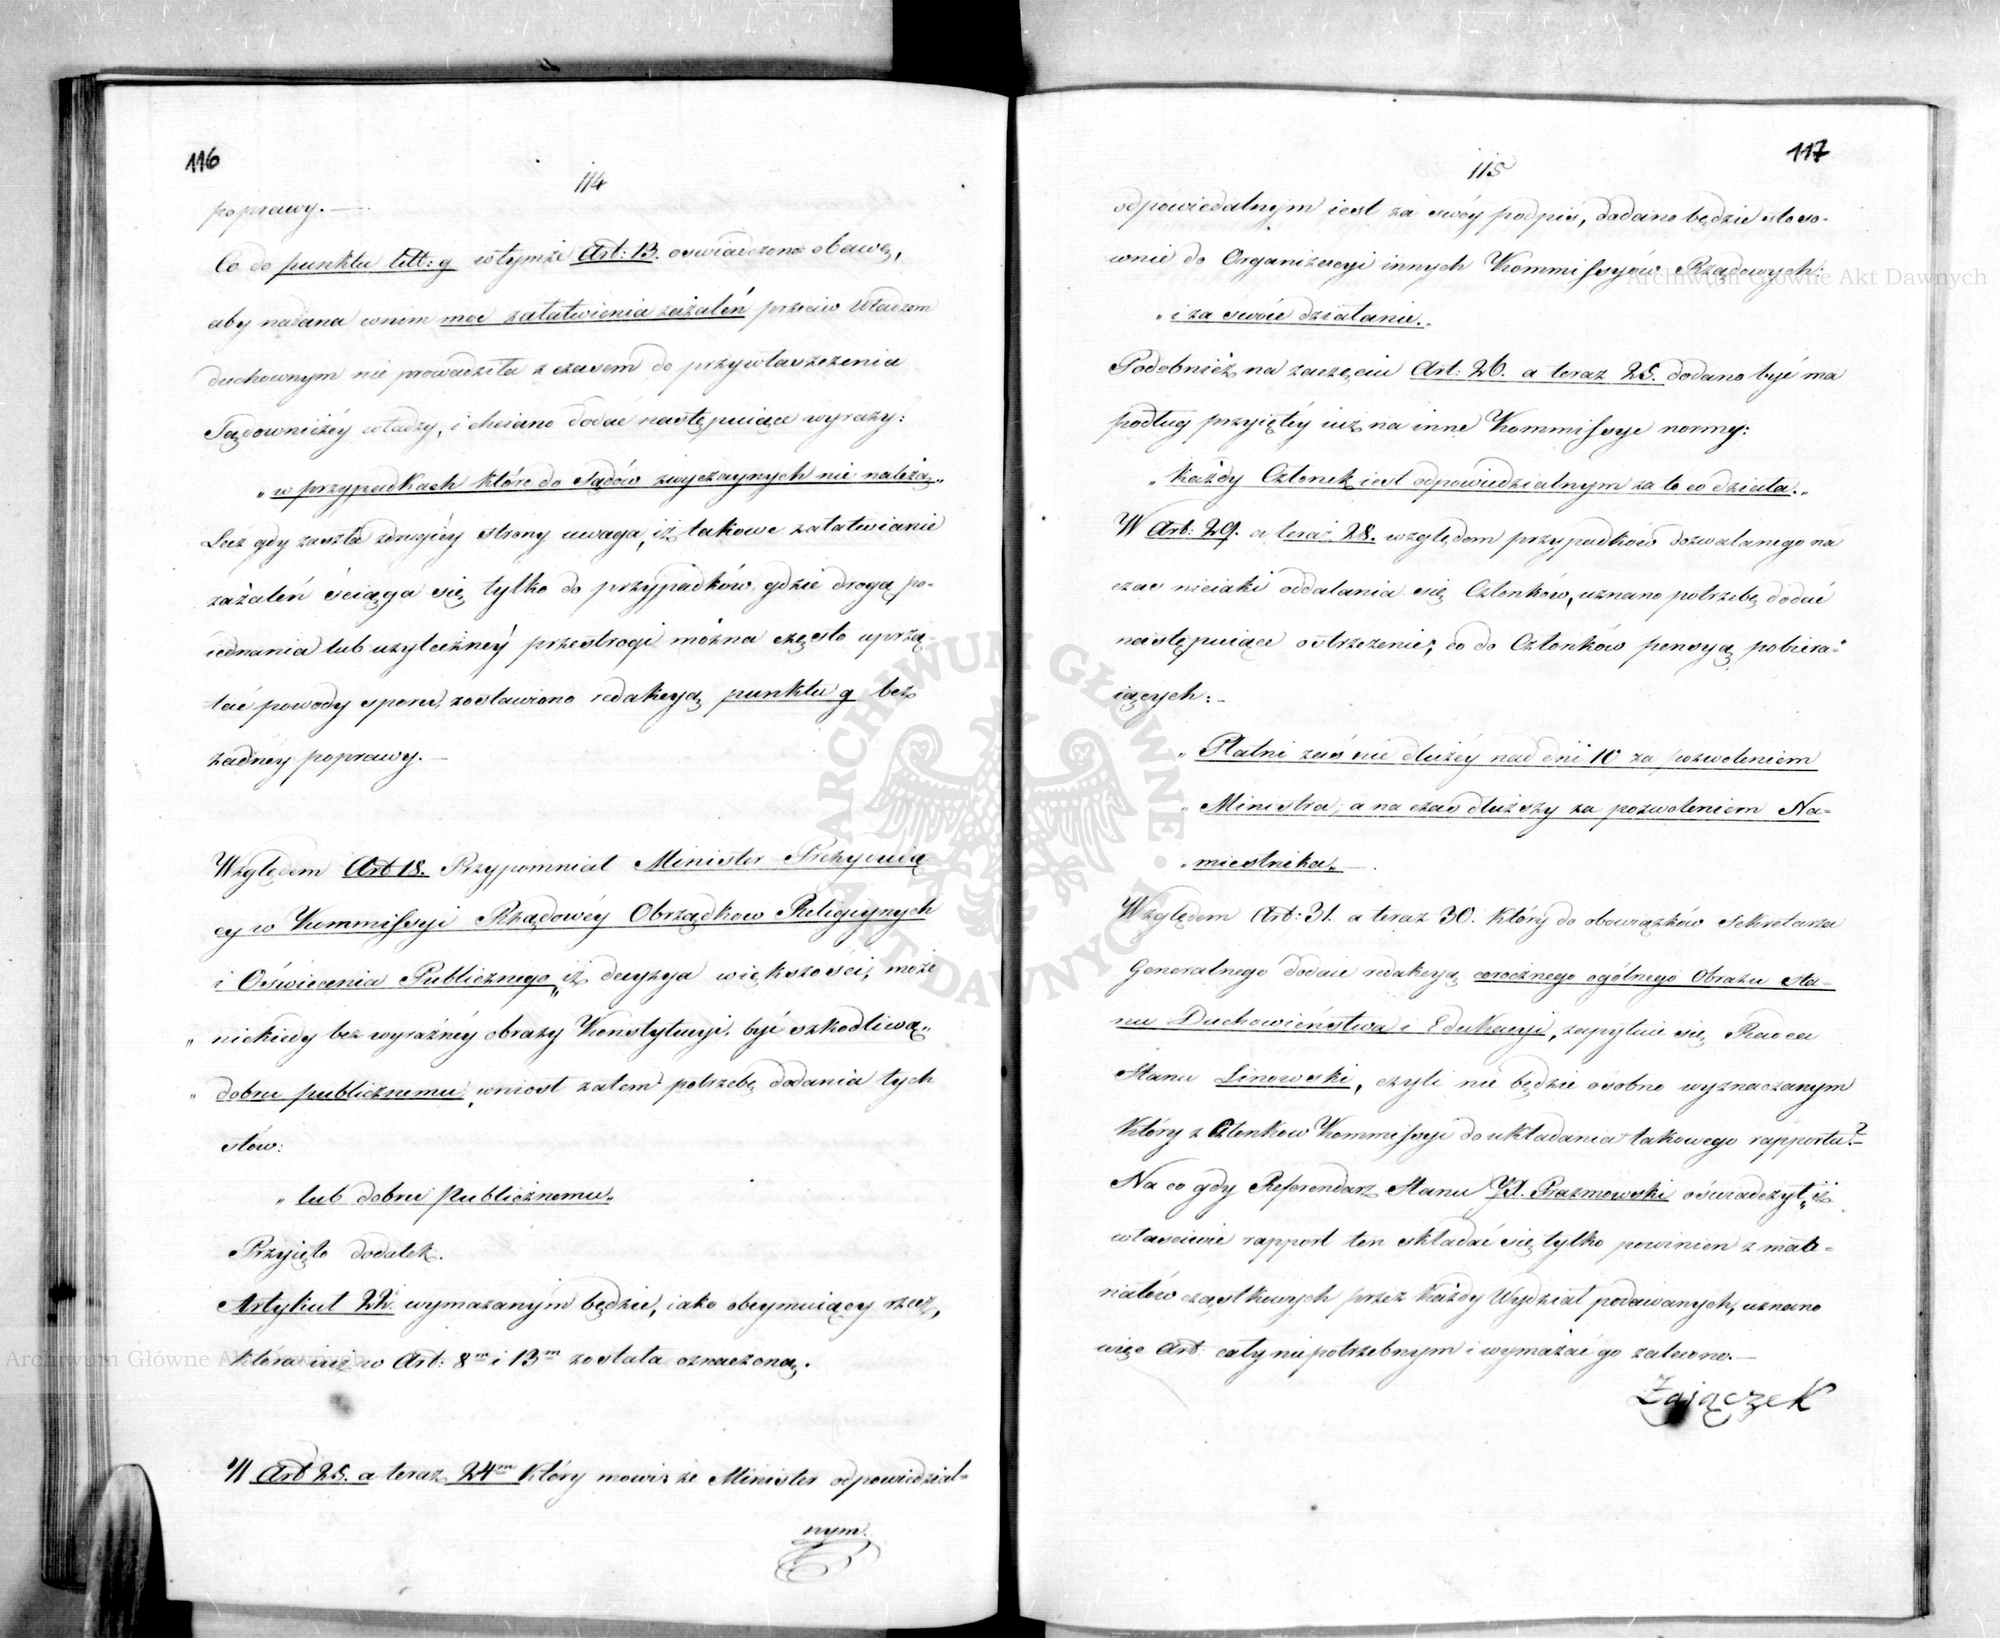 116
114
poprawy. —
Co do punktu litt: g wtymże Art: 13. oswiadczono obawę,
aby nadana wnim moc załatwienia zażaleń przeciw Władzom
duchownym nie prowadziła z czasem do przywłaszczenia
Sądowniczéy władzy, i chciano dodać następuiące wyrazy:
„w przypadkach które do Sądów zwyczaynych nie należą„
Lecz gdy zaszła zdrugiéy strony uwaga, iż takowe załatwianie
zażaleń ściąga się tylko do przypadków gdzie drogą po-
iednania lub użyteczney przestrogi można często uprzą-
tać powody sporu, zostawiono redakcyą punktu g bez
żadnéy poprawy. —
Względem Art 18. Przypomniał Minister Prezyduią
cy w Kommissyi Rządowéy Obrządkow Religiynych
i Oświecenia Publicznego „iż decyzya większości, może
„ niekiedy bez wyraźnéy obrazy Konstytucyi, być szkodliwą„
„ dobru publicznemu, wniosł zatem potrzebę dodania tych
słów:
„ lub dobru Publicznemu„
Przyięto dodatek.
Artykuł 22. wymazanym będzie, iako obeymuiący rzecz,
która iuż w Art: 8m i 13m została oznaczoną.
W Art 25. a teraz 24m który mowi, że Minister odpowiedzial-
nym.
117
115
odpowiedalnym iest za swóy podpis, dodano będzie stoso-
wnie do Organizacyi innych Kommissyów Rządowych:
„ i za swoie działanie.„
Podobnież na zaczęciu Art: 26. a teraz 25. dodano być ma
podług przyiętéy iuż na inne Kommissye normy:
„ Każdy Członek iest odpowiedzialnym za to co działa.„
W Art: 29. a teraz 28. względem przypadków dozwalanego na
czas nieiaki oddalania się Członków, uznano potrzebę dodać
następuiące ostrzezenie, co do Członków pensyą pobiera-
iących: —
„ Płatni zaś nie dłużéy nad dni 10 za pozwoleniem
„ Ministra, a na czas dłuższy za pozwoleniem Na-
„ miestnika„ —.
Względem Art: 31. a teraz 30. który do obowiązków Sekretarza
Generalnego dodaie redakcyą corocznego ogólnego Obrazu Sta-
nu Duchowieństwa i Edukacyi, zapytuie się Radca
Stanu Linowski, czyli nie będzie osobno wyznaczanym
który z Członkow Kommissyi do układania takowego rapportu? —
Na co gdy Referendarz Stanu X. Prazmowski oświadczył, „iż
właściwie rapport ten składać się tylko powinien z mate-
riałów cząstkowych przez każdy Wydział podawanych, uznano
więc Art: cały niepotrzebnym i wymazać go zalecono. —
Zaiączek
Archiwum Główne Akt Dawnych
Archiwum Główne Akt Dawnych
ARCHIWUM GŁÓWNE AKT DAWNYCH